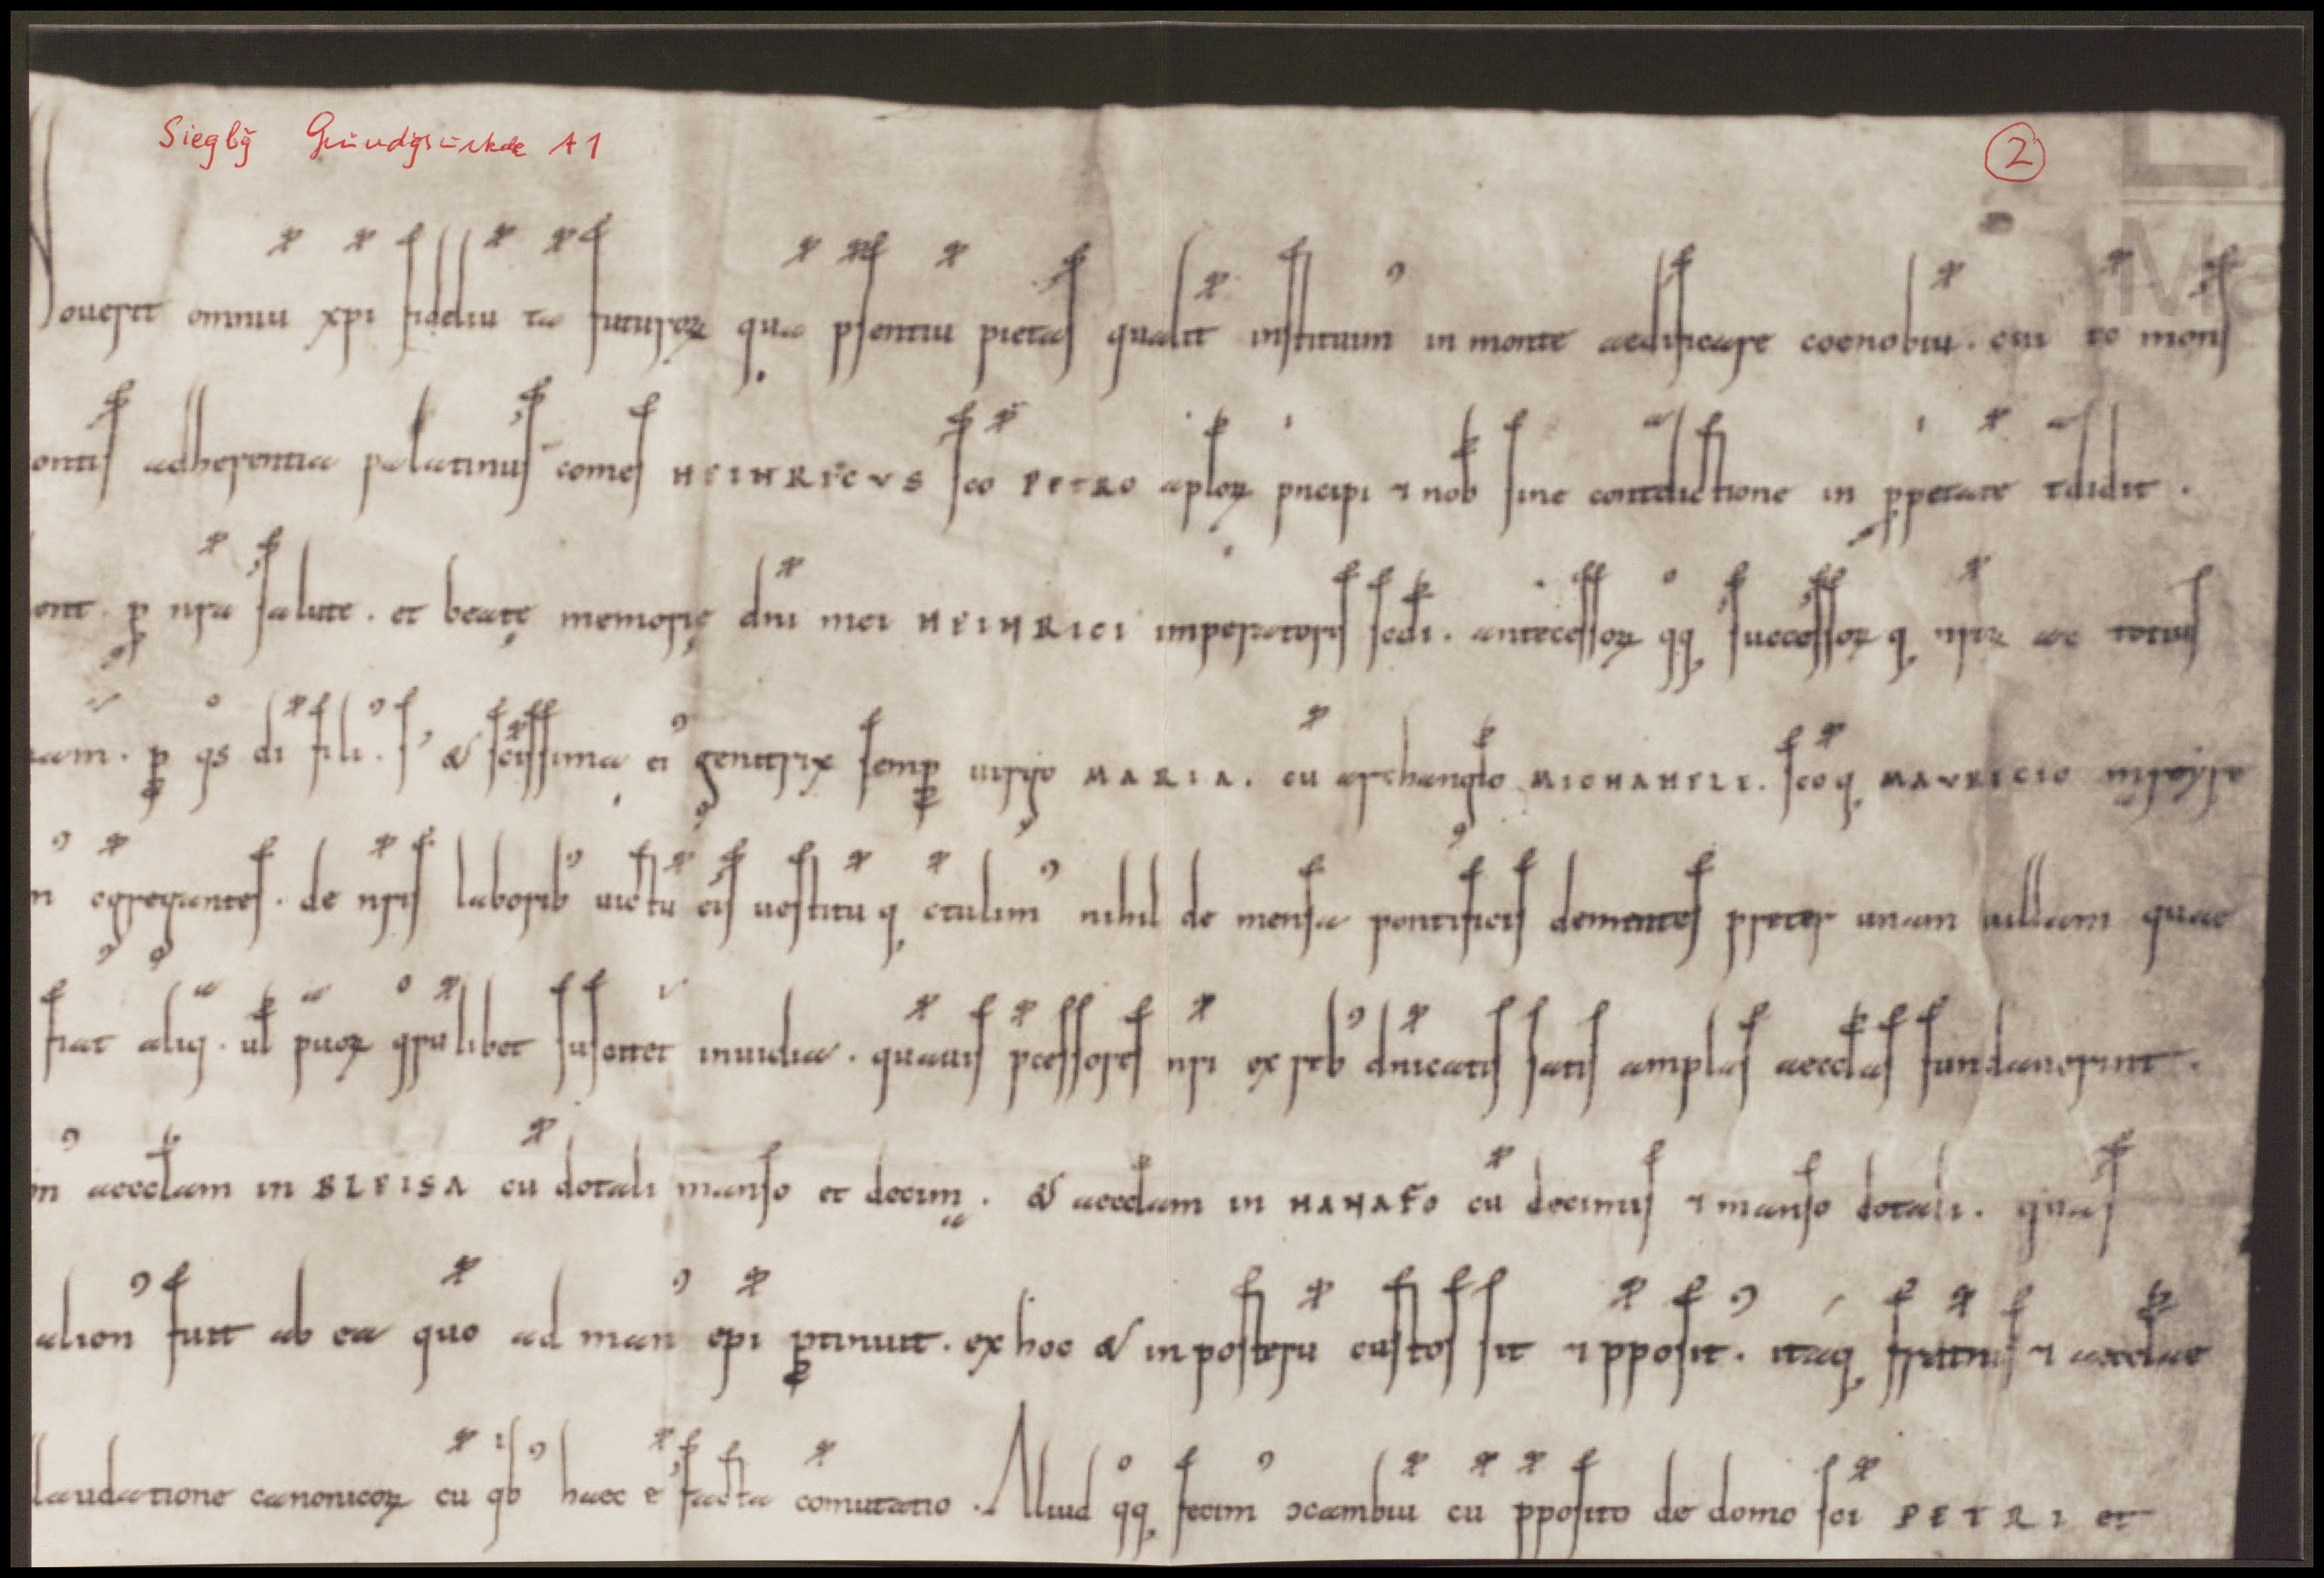 Siegbg Gründgsurkde A1
2
Nouerit omniū xpi fideliū tā futuroꝝ quā psentiū pietas qualit instituim' in monte aedificare coenobiū. cui tō mons
ontis adherentia palatinus comes HEINRICVS sco PETRO aploꝝ pncipi ⁊ nob sine contdictione in ppetate tdidit.
ent. p nra salute. et beatę memorię dni mei HEINRICI imperatoris scdi. antecessoꝝ qq, successoꝝ q, nrꝝ ac totius
iam. p qs di fili. s' & scissima ei' genitrix semp uirgo MARIA. cū archanglo MICHAHELE. sco q, MAVRICIO
n' cgregantes. de nris laborib' uictū eis uestitū q, ctulim' nihil de mensa pontificis dementes preter unam uillam quae
fiat aliq. ul puoꝝ qrūlibet inuidia. quāuis pcessores nri ex reb' dnicatis satis amplas aecclas fundauerint.
m' aecclam in BLEISA cū dotali manso et decim. & aecclam in HANAFO cū decimis ⁊ manso dotali. quas
alion' fuit ab ea quo ad man' epi ptinuit. ex hoc & in posterū custos sit ⁊ pposit'. itaq, fratrus ⁊ aecclae
laudatione canonicoꝝ cū qb' haec ē facta comutatio. Aliud qq, fecim' ɔcambiū cū pposito de domo sci PETRI et